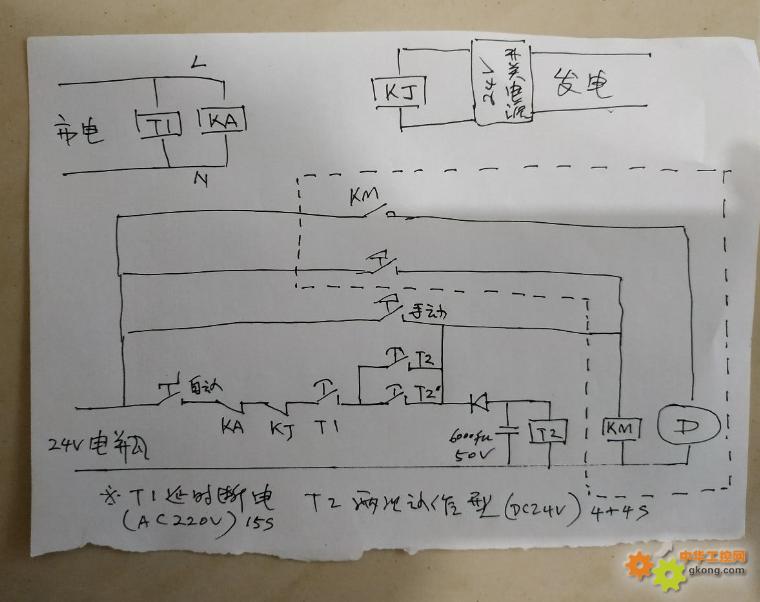 L
市电
T1
KA
N
KJ
24V
开关电源
发电
KM
手动
T2
自动
T2"
KA
KJ
T1
6000fu
50V
T2
KM
D
24V电瓶
※T1延时断电
(AC220V)15S
T2两次动作型(DC24V)4+4S
中华工控网
gkong.com